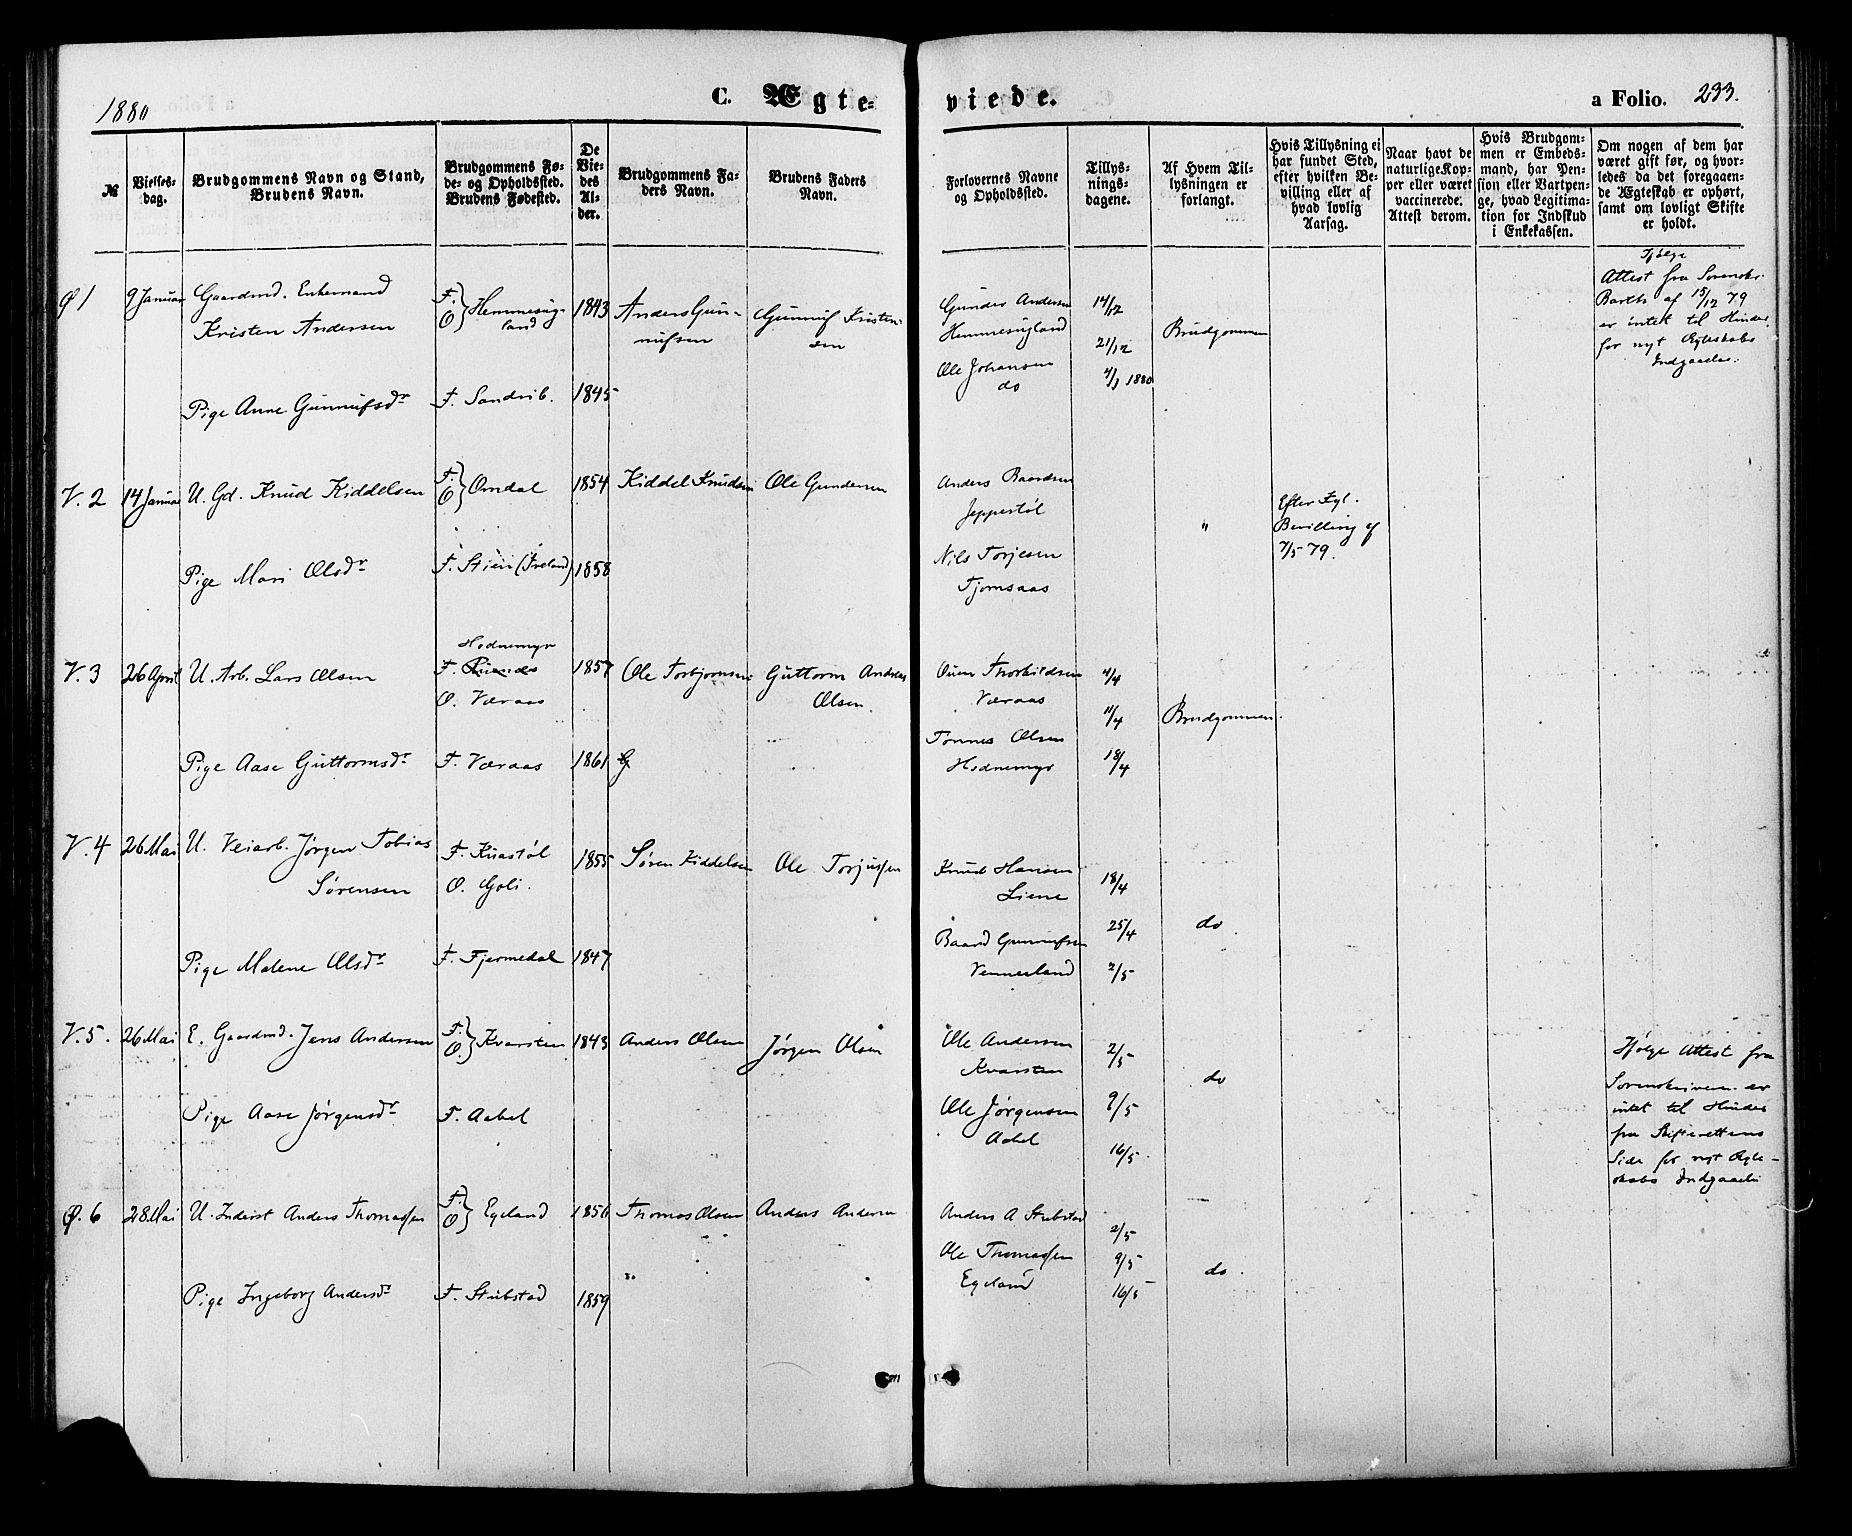 1880
C. Ægte-
viede.
a Folio. 233.
№
Vielses-
dag.
Brudgommens Navn og Stand,
Brudens Navn.
Brudgommens Fø-
de- og Opholdssted.
Brudens Fødested.
De
Vie-
des
Al-
der.
Brudgommens Fa-
ders Navn.
Brudens Faders
Navn.
Forlovernes Navne
og Opholdssted.
Tillys-
nings-
dagene.
Af Hvem Til-
lysningen er
forlangt.
Hvis Tillysning ei
har fundet Sted,
efter hvilken Be-
villing eller af
hvad lovlig
Aarsag.
Naar havt de
naturlige Kop-
per eller været
vaccinerede.
Attest derom.
Hvis Brudgom-
men er Embeds-
mand, har Pen-
sion eller Vartpen-
ge, hvad Legitima-
tion for Indskud
i Enkekassen.
Om nogen af dem har
været gift før, og hvor-
ledes da det foregaaen-
de Ægteskab er ophørt,
samt om lovligt Skifte
er holdt.
Ø 1
9 Januar
Gaardmd. Enkemand
Kristen Andersen
F.
O } Hemmesig-
land
1843
Anders Gun-
nufsen
Gunnuf Kristen-
sen
Gunder Andersen
Hemmesigland
Ole Johansen
do
14/12
21/12
4/1 1880
Brudgommen
Ifølge
Attest fra Sorenskr.
Barth af 15/12 79
er intet til Hinder
for nyt Ægteskabs
Indgaaelse.
Pige Anne Gunnufsdr
F. Sandvik.
1845
V. 2
14 Januar
U. Gd. Knud Kiddelsen
F.
O } Omdal
1854
Kiddel Knudsen
Ole Gundersen
Anders Baardsen
Jeppestøl
Nils Torjesen
Tjomsaas
"
Efter Kgl.
Bevilling af
7/5 79.
Pige Mari Olsdr
F. Stien (Iveland)
1858
V. 3
26 April
U. Arb. Lars Olsen
Hodnemyr
F.
O. Væraas
1857
Ole Torbjørnsen
Guttorm Andreas
Olsen.
Ouen Thorkildsen
Væraas
Tønnes Olsen
Hodnemyr
4/4
11/4
18/4
Brudgommen.
Pige Aase Guttormsdr
F. Væraas
1861
V. 4
26 Mai
U. Veiarb. Jørgen Tobias
Sørensen
F. Knastøl
O. Goli.
1855
Søren Kiddelsen
Ole Torjussen
Knud Hansen
Liene
Baard Gunnufsen
Vennerland
18/4
25/4
2/5
do.
Pige Malene Olsdr
F. Fjermedal
1847
V. 5.
26 Mai
E. Gaardmd. Jens Andersen
F.
O. } Kvarsten
1843
Anders Olsen
Jørgen Olsen
Ole Andersen
Kvarsten
Ole Jørgensen
Aabel
2/5
9/5
16/5.
do
Ifølge Attest fra
Sorenskriveren er
intet til Hinder
fra Skifterettens
Side for nyt Ægte-
skabs Indgaaelse
Pige Aase Jørgensdr
F. Aabel
Ø. 6
28 Mai
U. Inderst Anders Thomassen
F.
O } Egeland
1856
Thomas Olsen
Anders Andersen
Anders A Stubstad
Ole Thomassen
Egeland
2/5
9/5
16/5
do.
Pige Ingeborg Andersdr
F. Stubstad
1859